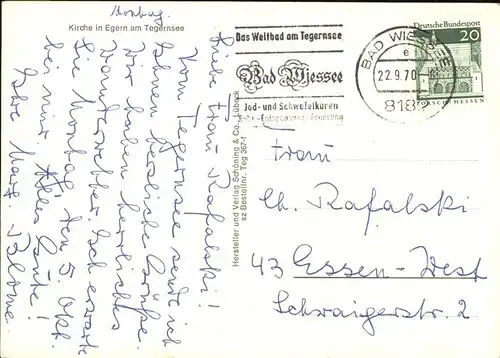 Montag.
Kirche in Egern am Tegernsee
Liebe Frau Rafalski!
Vom Tegernsee sende ich
Ihnen herzliche Grüße.
Wir haben herrliches
Wanderwetter. Ich erwarte
Sie Montag, den 5. Okt.
bei mir. Alles Gute!
Ihre Marg. Blome.
Hersteller und Verlag Schöning & Co., Lübeck
sz Bestellnr. Teg 367-1
Das Weltbad am Tegernsee
Bad Wiessee
Jod- und Schwefelkuren
BAD WIESSEE
e
22.9.70
8182
Deutsche Bundespost
20
LORSCH/HESSEN
Frau
Ch. Rafalski
43 Essen-West
Schwaigerstr. 2